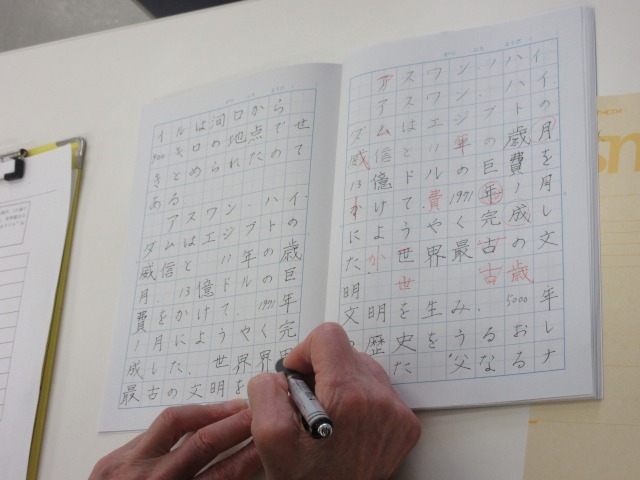 イルは河口から
900キロの地点でせ
きとめられたので
ある
アスワン・ハイ
ダムはエジプトの
威信と11年の歳
月.13億ドルの巨
費をかけて.1971年
1月にようやく完
成した.世界
最古の文明を
アスワン.ハイ
アスワン.ハイ
ダムはエジプトの
威信と11年の歳月を
13億ドルの巨費
かけて1971年1月
にようやく完成し
た世界最古の文
明
文明を生み.5000年
歴史をうるおし
た父なるナ